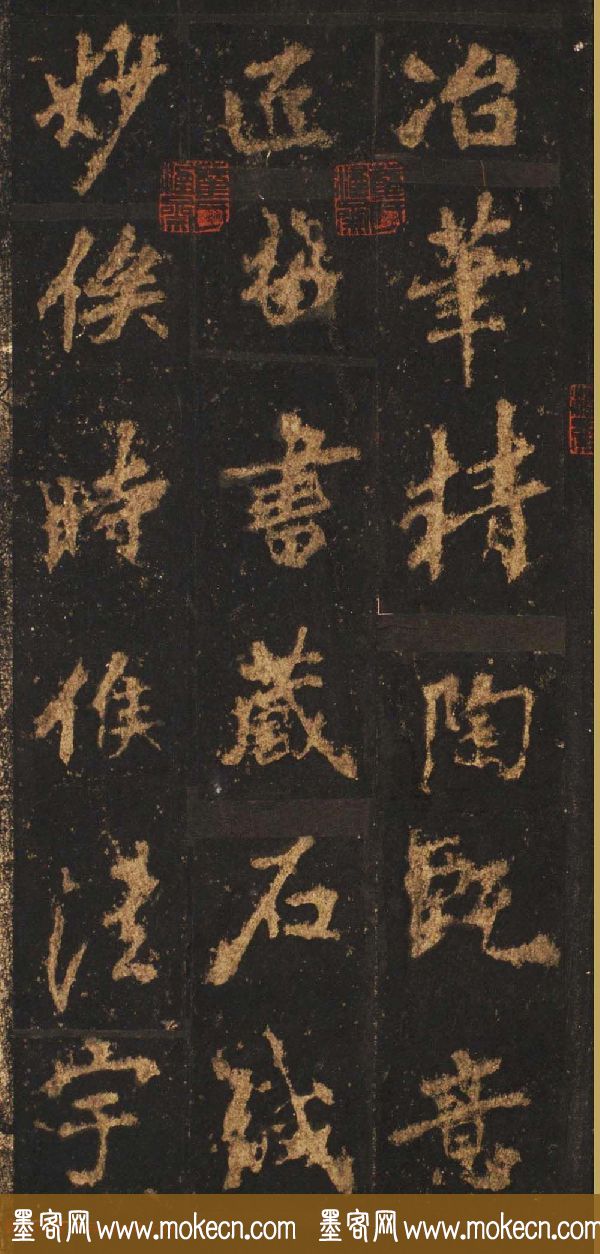 冶筆精陶甄意
匠書藏石緘
妙俟時候法宇
墨客网 www.mokecn.com 墨客网 www.mokecn.com